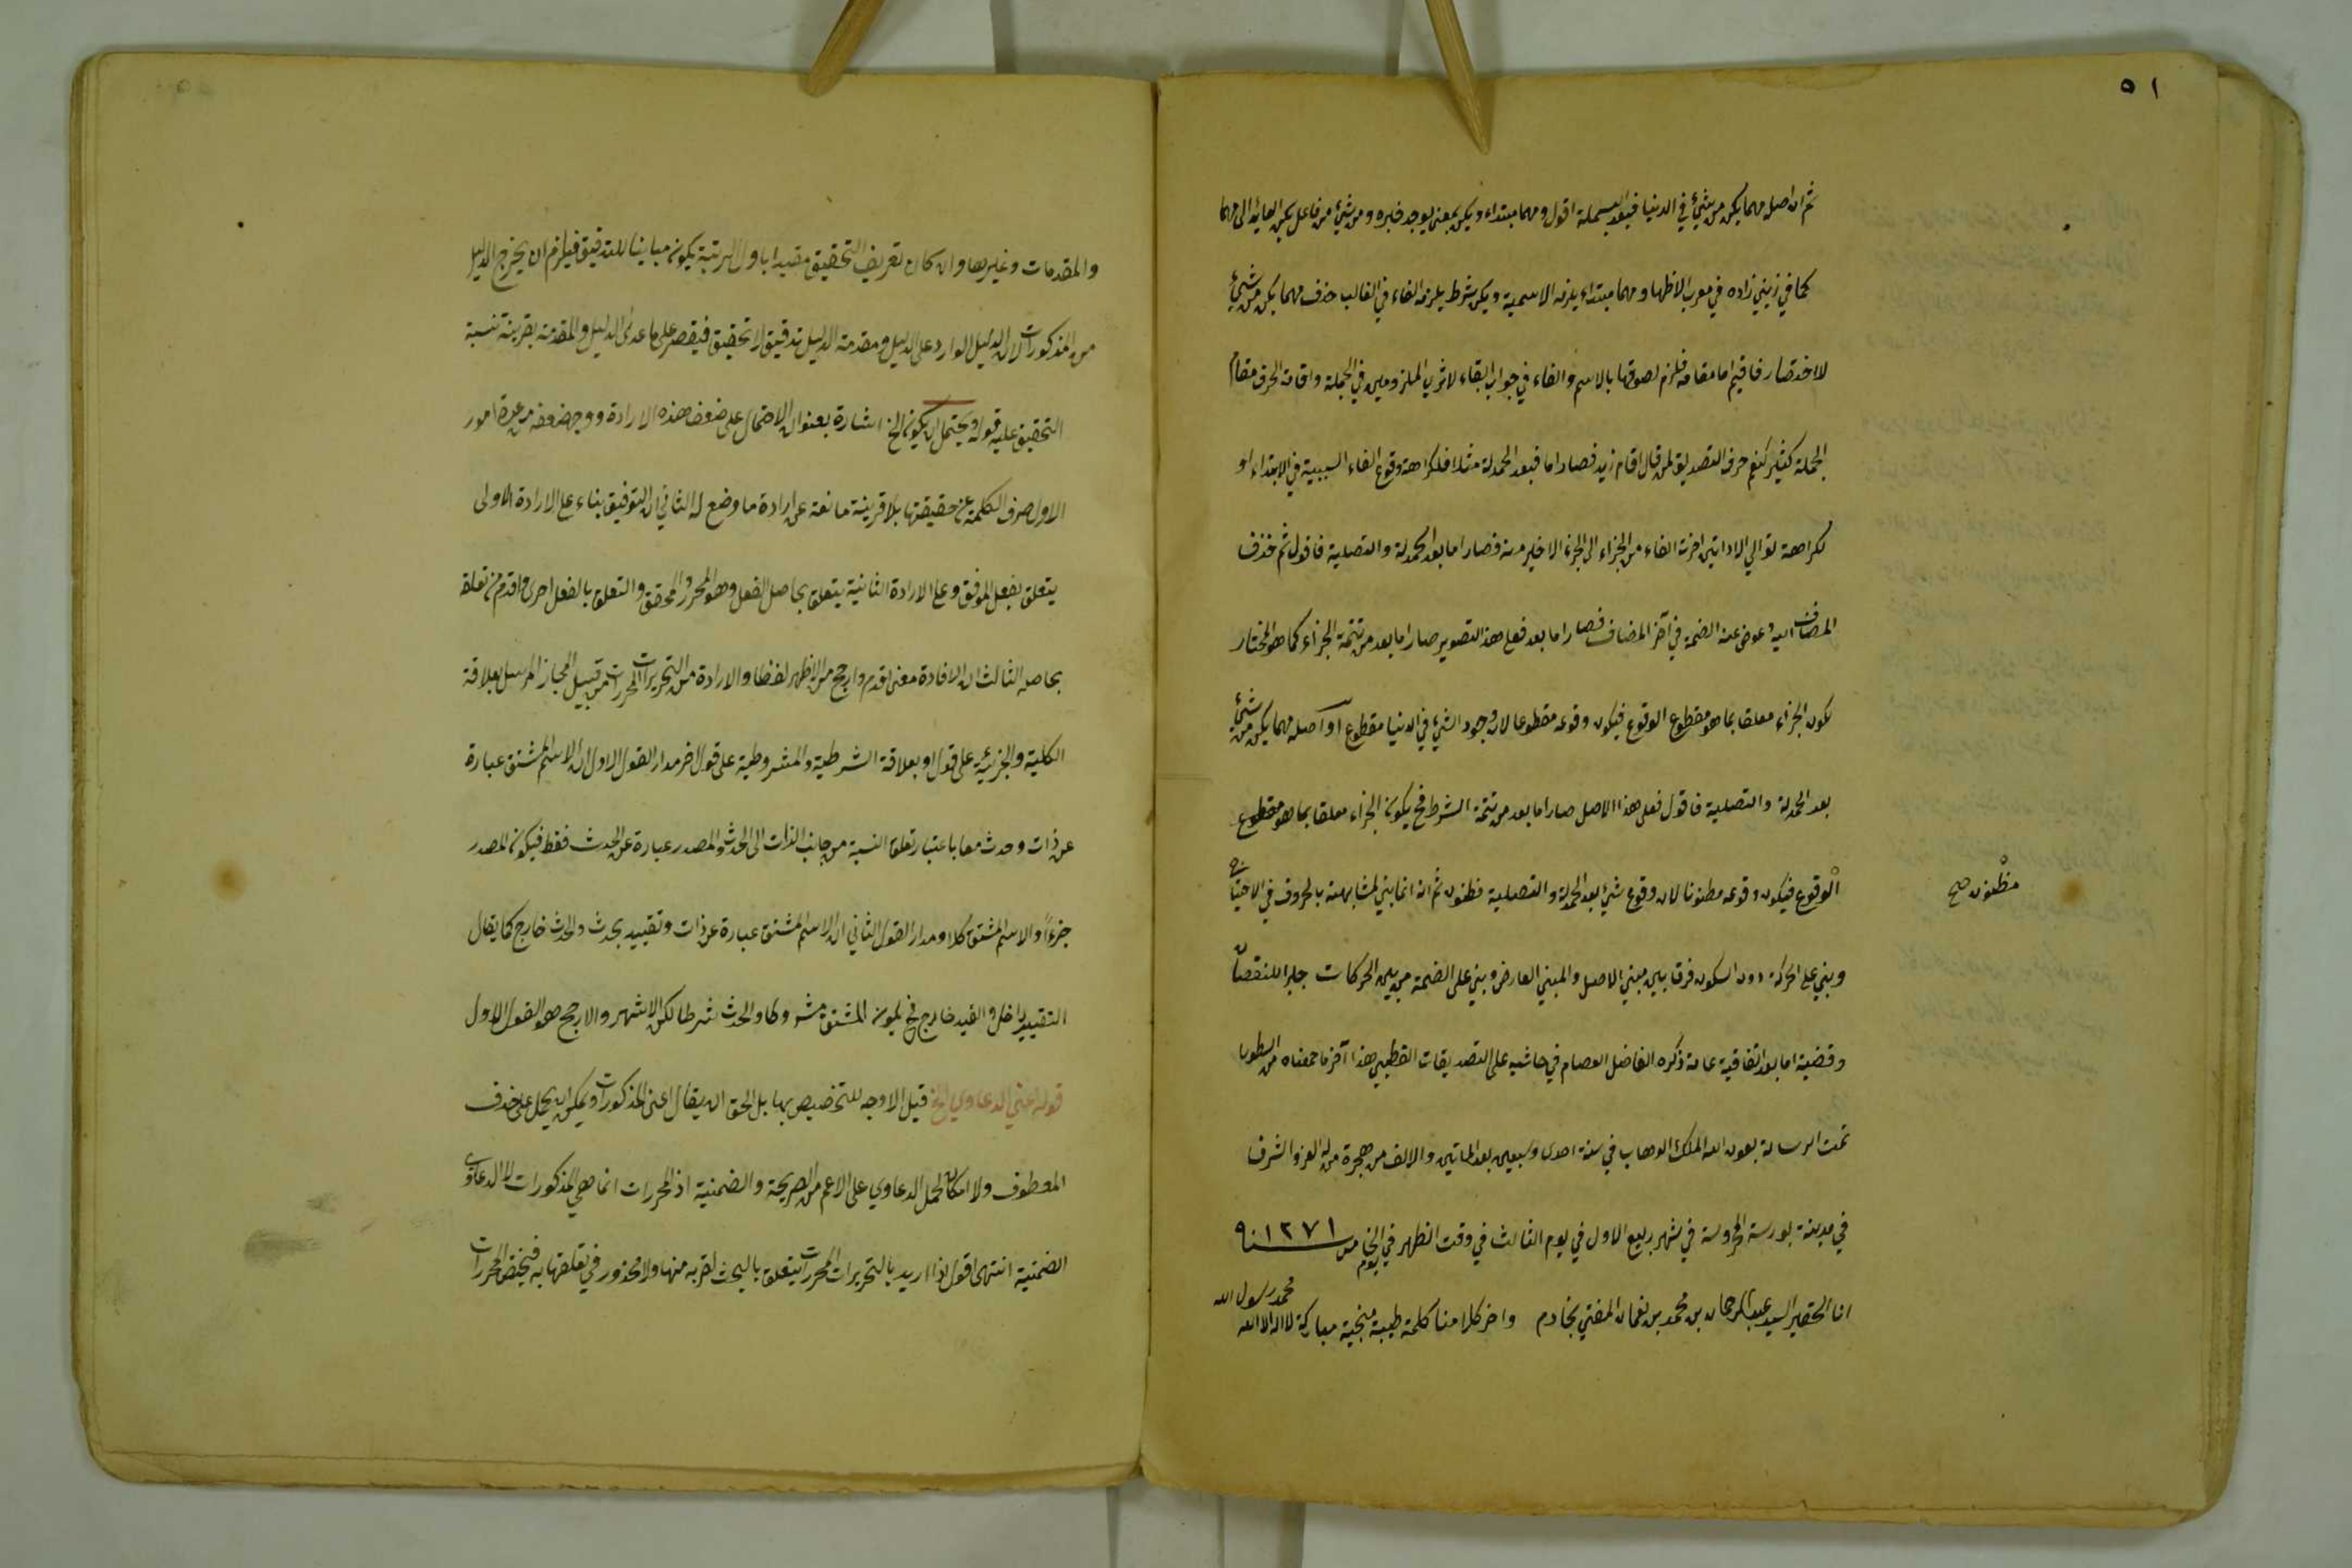 ٥١
ثم ان اصل مهما يكن من شئ في الدنيا فبعد البسملة اقول ومهما مبتداء ويكن بمعنى يوجد خبره ومن شئ من فاعل يكن العائد الى مهما
كما في زيني زاده في معرب الاظهار ومهما مبتداء يلزمه الاسمية ويكن شرط يلزمه الفاء في الغالب حذف مهما يكن من شئ
لاختصار فاقيم اما مقامه فلزم لصوقها بالاسم والفاء في جواب ابقاء لاثر الملزومين في الجملة واقامة الحرف مقام
الجملة كثير كنعم حرف التصديق لمن قال اقام زيد فصار اما فبعد الحمدلة مثلا فلكراهة وقوع الفاء السببية في الابتداء او
لكراهة توالي الاداتين اخرت الفاء من الجزاء الى الجزء الاخير منه فصار اما بعد الحمدلة والتصلية فاقول ثم حذف
المضاف اليه وعوض عنه الضمة في آخر المضاف فصار اما بعد فعلى هذا التصوير صار اما بعد من تتمة الجزاء كما هو المختار
لكون الجزاء معلقا بما هو مقطوع الوقوع فيكون وقوعه مقطوعا لان وجود الشئ في الدنيا مقطوع او اصله مهما يكن من شئ
بعد الحمدلة والتصلية فاقول فعلى هذا الاصل صار اما بعد من تتمة الشرط فح يكون الجزاء معلقا بما هو مقطوع
الوقوع فيكون وقوعه مظنونا لان وقوع شئ بعد الحمدلة والتصلية مظنون ثم انه انما بني لمشابهته بالحروف في الاحتياج
مظنون صح
وبني على الحركة دون السكون فرقا بين مبني الاصل والمبني العارض وبني على الضمة من بين الحركات جبرا للنقصان
وقضية اما بعد اتفاقية عامة ذكره الفاضل العصام في حاشيه على التصديقات القطبي هذا آخر ما جمعناه من السطور
تمت الرسالة بعون الله الملك الوهاب في سنة احدى وسبعين بعد الماتين والالف من هجرة من له العز والشرف
في مدينة بورسة المحروسة في شهر ربيع الاول في يوم الثالث في وقت الظهر في اليوم الخامس سنه ١٢٧١
انا الحقير السيد عبد الرحمان بن محمد بن نعمان المفتي بخادم واخر كلامنا كلمة طيبة منجية مباركة لا اله الا الله محمد رسول الله
والمقدمات وغيرها وان كان تعريف التحقيق مقيدا باول المرتبة يكون مباينا للتدقيق فيلزم ان يخرج الدليل
من المذكورات لان الدليل الوارد على الدليل ومقدمة الدليل تدقيق لا تحقيق فيقصر على ما عدى الدليل والمقدمة بقرينة نسبة
التحقيق عليه قوله ويحتمل ان يكون الخ اشارة بعنوان الاحتمال على ضعف هذه الارادة ووجه ضعفه من عدة امور
الاول صرف الكلمة عن حقيقتها بلا قرينة مانعة عن ارادة ما وضع له الثاني ان التوفيق بناء على الارادة الاولى
يتعلق بفعل الموفق وعلى الارادة الثانية يتعلق بحاصل الفعل وهو المحرر والمحقق والتعلق بالفعل احرى واقدم من تعلقه
بحاصله الثالث ان الافادة معنى اقدم وارجح من الاظهر لفظا والارادة من التحريرات المحررات من قبيل المجاز المرسل بعلاقة
الكلية والجزئية على قول او بعلاقة الشرطية والمشروطية على قول اخر مدار القول الاول ان الاسم المشتق عبارة
عن ذات وحدث معا باعتبار تعلق النسبة من جانب الذات الى الحدث والمصدر عبارة عن الحدث فقط فيكون المصدر
جزءاً والاسم المشتق كلا ومدار القول الثاني ان الاسم المشتق عبارة عن ذات وتقييد بحدث والحدث خارج كما يقال
التقييد داخل والقيد خارج فح يكون المشتق مشروطا والحدث شرطا لكن الاشهر والارجح هو القول الاول
قوله اعني الدعاوي الخ قيل الاوجه للتخصيص بها بل الحق ان يقال اعني المذكورات ويمكن ان يحمل على حذف
المعطوف ولا امكان لحمل الدعاوي على الاعم من الصريحة والضمنية اذ المحررات انما هي المذكورات لا الدعاوى
الضمنية انتهى اقول اذا اريد بالتحريرات المحررات يتعلق بالبحث لقربه منها ولا محذور في تعلقها به فيختص المحررات